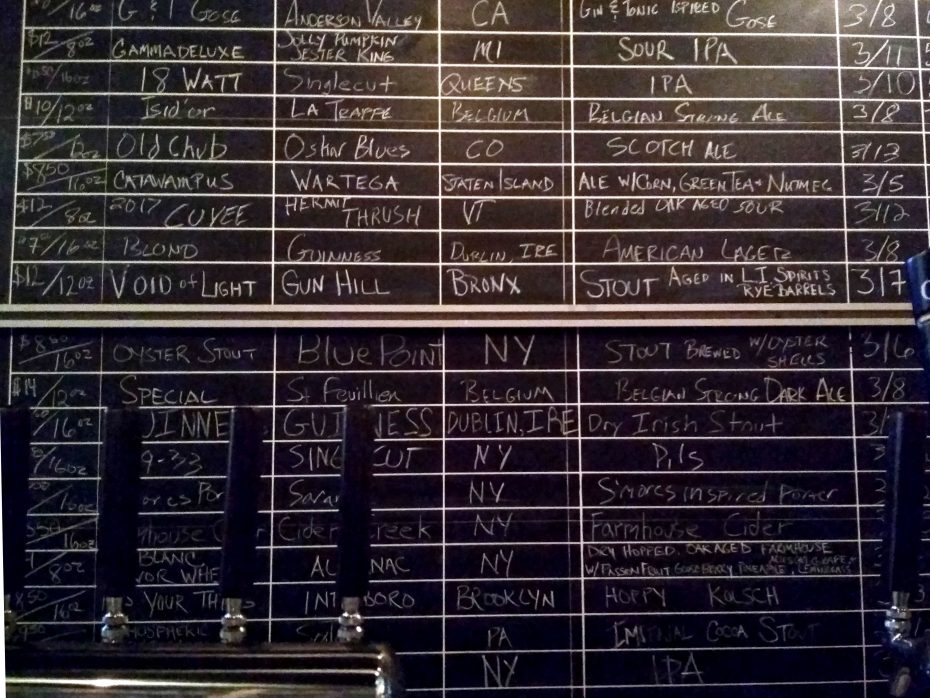 16oz G & T GOSE ANDERSON VALLEY CA GIN & TONIC ISPIRED GOSE 3/8
$12/8oz GAMMADELUXE JOLLY PUMPKIN JESTER KING MI SOUR IPA 3/11
16oz 18 WATT Singlecut QUEENS IPA 3/10
$10/12oz Isid'or LA TRAPPE BELGIUM BELGIAN STRONG ALE 3/8
Old Chub Oskar Blues CO SCOTCH ALE 3/13
$8.50/16oz CATAWAMPUS WARTEGA STATEN ISLAND ALE W/CORN, GREEN TEA + NUTMEG 3/5
$12/8oz 2017 CUVEE HERMIT THRUSH VT Blended OAK AGED SOUR 3/12
7/16oz BLOND GUINNESS DUBLIN, IRE AMERICAN LAGER 3/8
$12/12oz VOID of LIGHT GUN HILL BRONX STOUT AGED IN L.I. SPIRITS RYE BARRELS 3/7
16oz OYSTER STOUT Blue Point NY STOUT BREWED W/OYSTER SHELLS 3/6
$14/12oz SPECIAL St Feuillien BELGIUM BELGIAN STRONG DARK ALE 3/8
16oz UINNE GUI NESS DUBLIN, IRE Dry Irish Stout 3/
16oz 9-33 SING CUT NY Pils
16oz ores Por Sara NY S'mores inspired Porter
16oz house Cider Creek NY Farmhouse Cider
8oz BLANC WHE AL NAC NY DRY HOPPED, OAK AGED FARMHOUSE W/ PASSIONFRUIT GOOSEBERRY PINEAPPLE, LEMONGRASS
16oz YOUR TH INT BORO BROOKLYN HOPPY KOLSCH 3
MOSPHERIC PA IMPERIAL COCOA STOUT
NY IPA